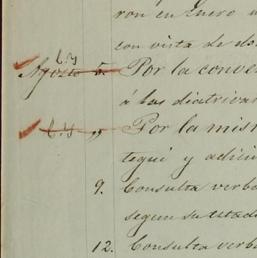 ron en Enero
con vista de do
6. y
Agosto 5. Por la conve
á las diatrivas
6. y " Por la mism
tegui y adici
9. Consulta verba
segun su estado
12. Consulta verba